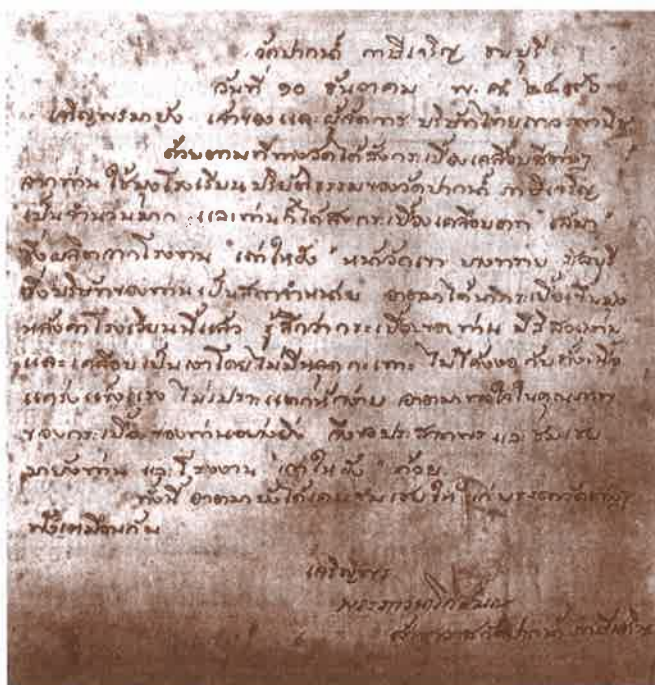 วัดปากน้ำ ภาษีเจริญ ธนบุรี
วันที่ ๑๐ ธันวาคม พ.ศ. ๒๔๙๖
เจริญพรมายัง เจ้าของและผู้จัดการ บริษัทไทย
ด้วยตามที่ทางวัดได้สั่งกระเบื้องเคลือบสีต่างๆ
จากท่าน ใช้มุงโรงเรียนปริยัติธรรมของวัดปากน้ำ ภาษีเจริญ
เป็นจำนวนมาก และท่านก็ได้ส่งกระเบื้องเคลือบตรา "เสมา"
ซึ่งผลิตจากโรงงาน "เตาใหฮั้ง" หน้าวัดเขา บางทราย ชลบุรี
ซึ่งบริษัทของท่านเป็นสถานจำหน่าย อาตมาได้นำกระเบื้องขึ้นมุง
หลังคาโรงเรียนนี้แล้ว รู้สึกว่ากระเบื้องของท่าน มีสีสวยงาม
และเคลือบเป็นเงาโดยไม่มีหลุดกะเทาะ ไม่โค้งงอ กับทั้งเนื้อ
แกร่งแข็งแรง ไม่เปราะแตกหักง่าย อาตมาพอใจในคุณภาพ
ของกระเบื้องของท่านอย่างยิ่ง จึงขอประสาทพร และชมเชย
มายังท่าน และโรงงาน "เตาใหฮั้ง" ด้วย
ทั้งนี้ อาตมายังได้แคนชมเชยให้แก่บรรดาวัดต่างๆ
เหมือนกัน
เจริญพร
พระภาวนาโกศลเถร
เจ้าอาวาสวัดปากน้ำ ภาษีเจริญ